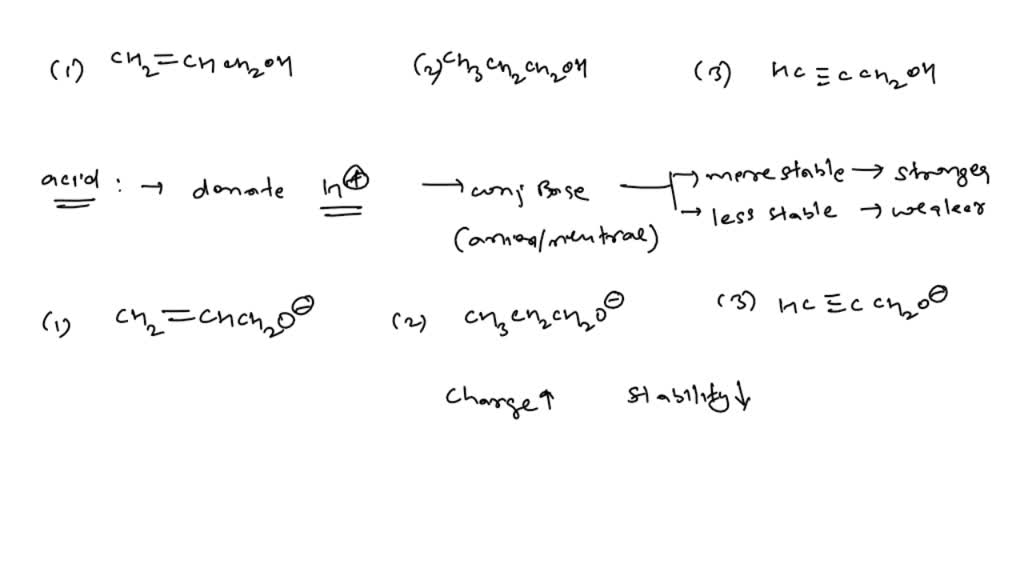 (1) CH2=CHCH2OH (2) CH3CH2CH2OH (3) HC≡CCH2OH
acid : → donate H⊕ → conj Base → more stable → stronger
→ less stable → weaker
(anion/neutral)
(1) CH2=CHCH2O⊖ (2) CH3CH2CH2O⊖ (3) HC≡CCH2O⊖
Charge↑ Stability↓